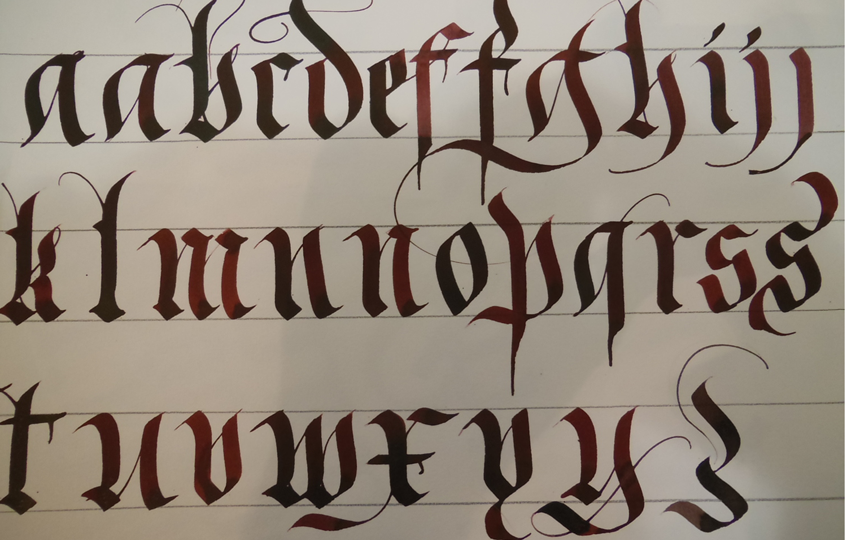 a a b c d e f f g h i j j
k l m n n o p q r s s
t u v w x y y z